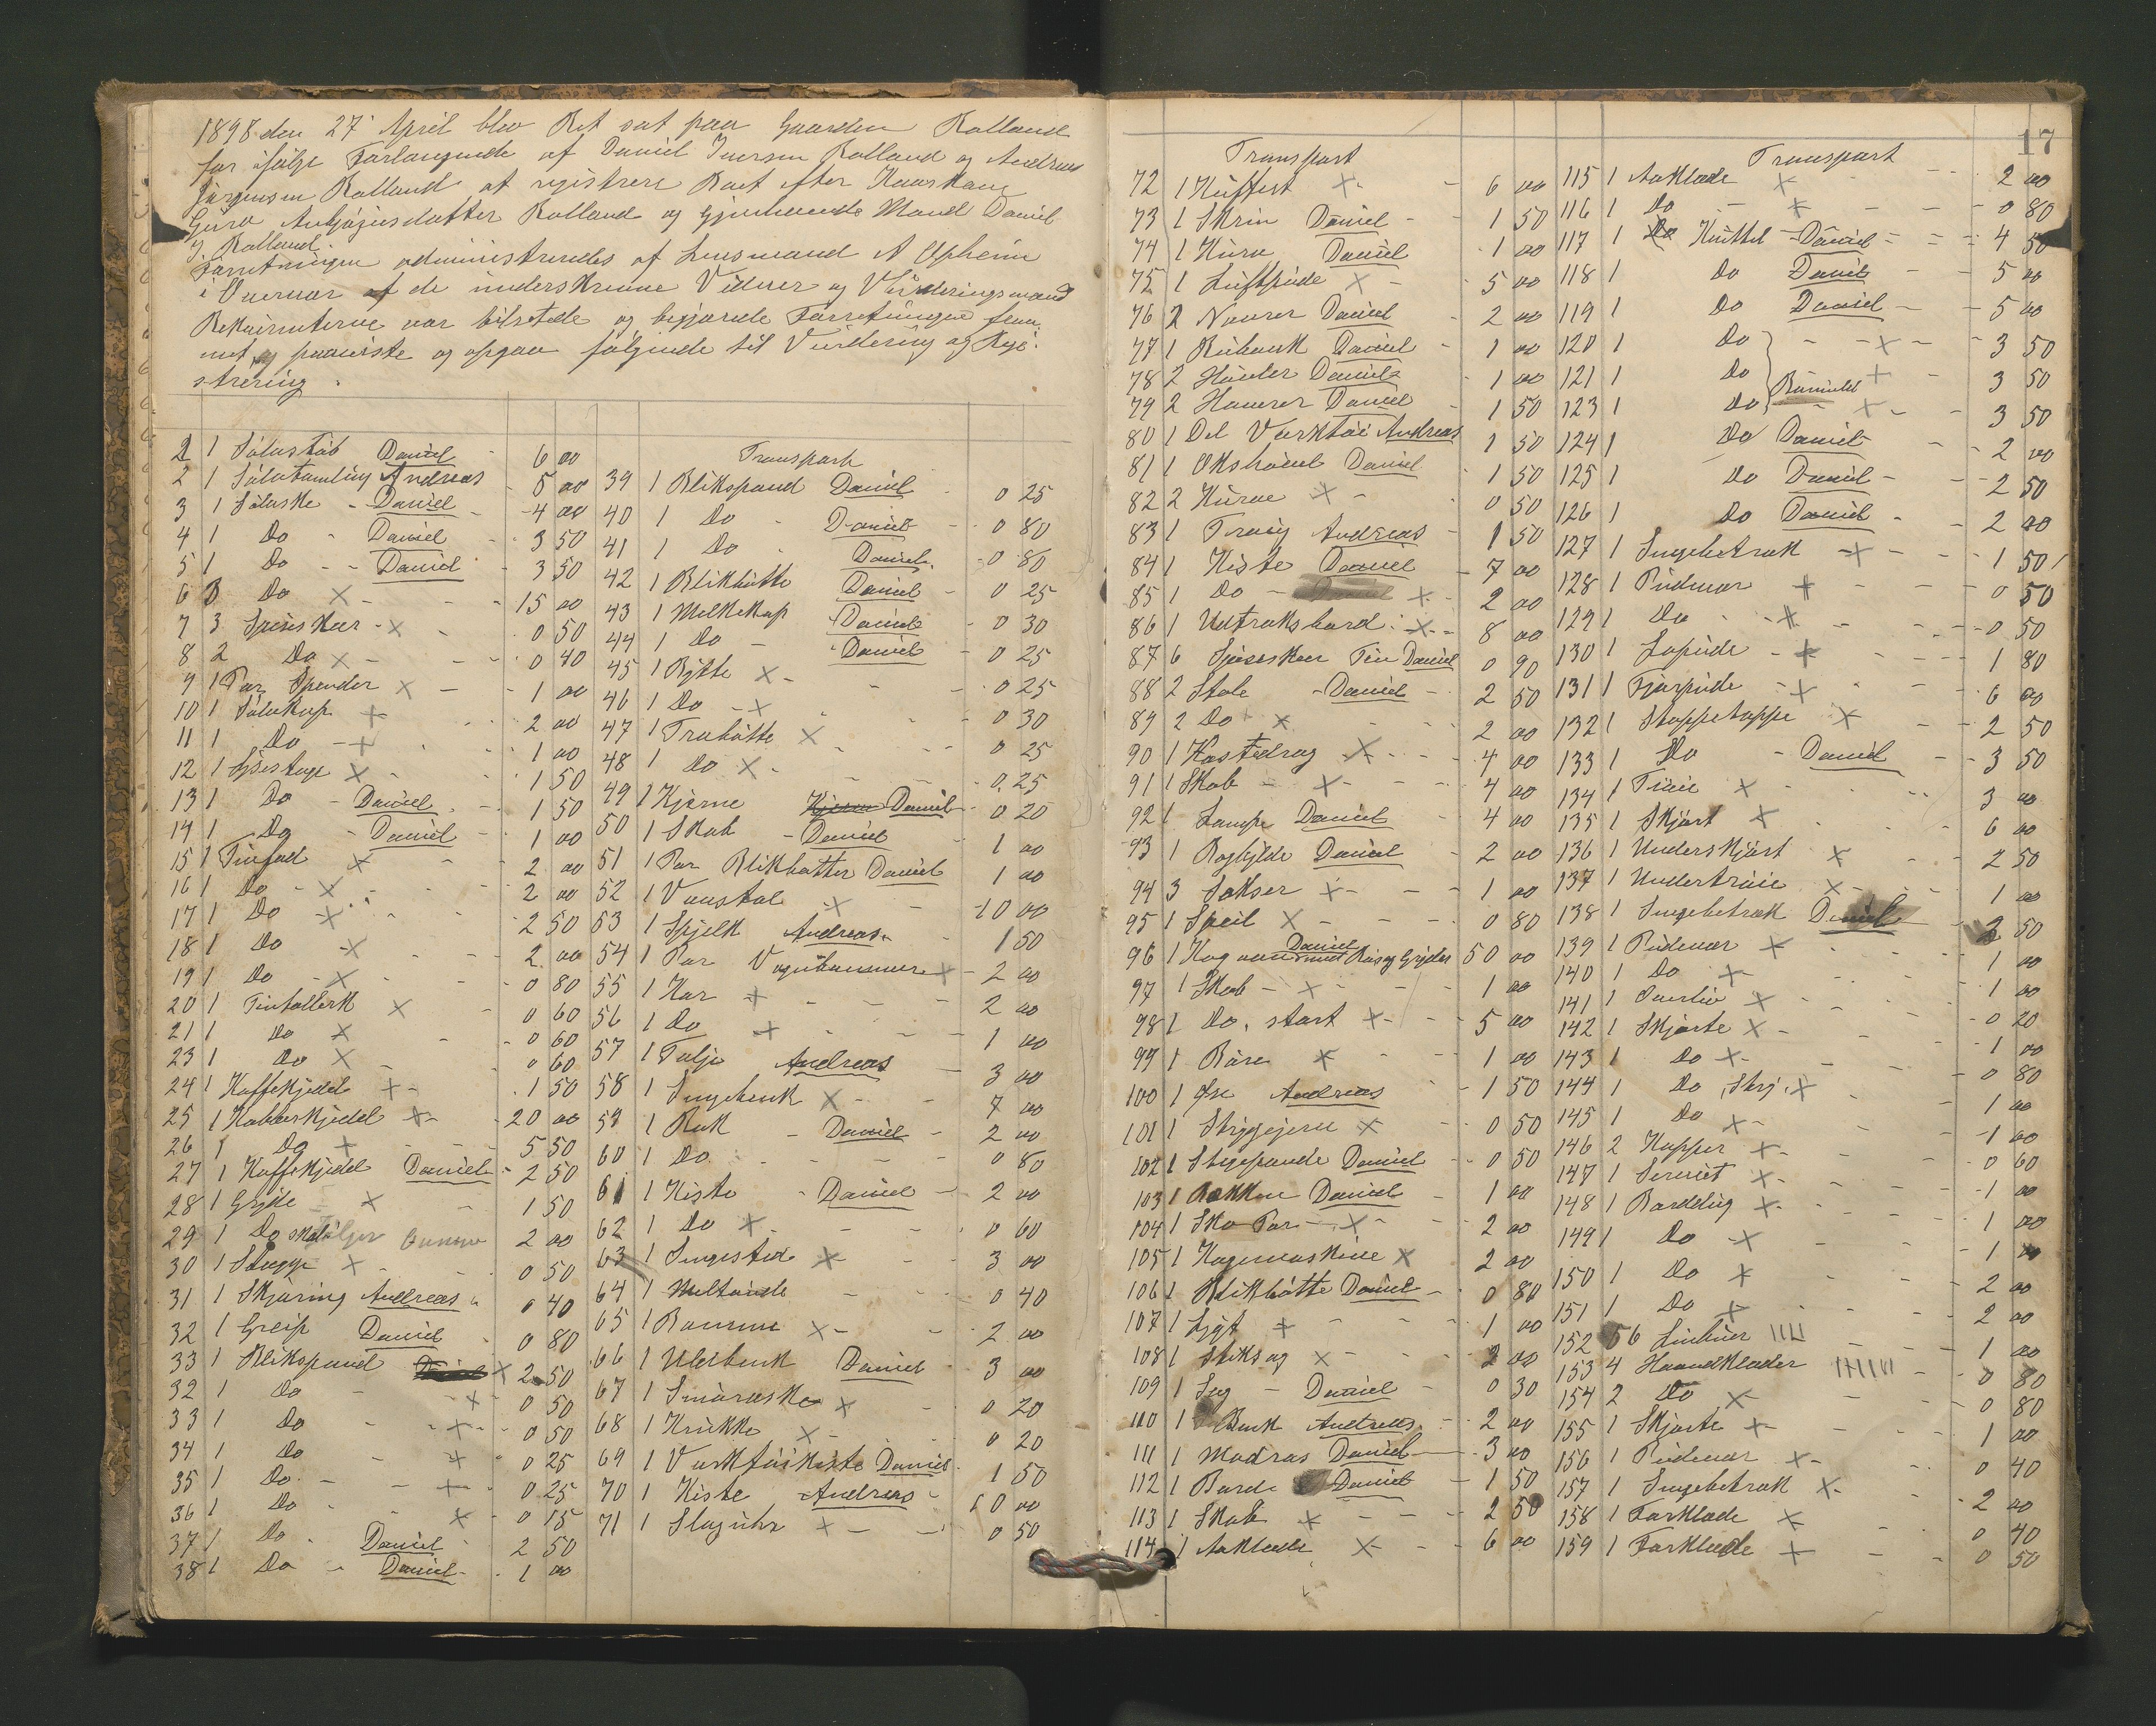 1898 den 27 April blev Ret sat paa Gaarden Rolland
for ifölge Forlangende af Daniel Iversen Rolland og Andreas
Jörgensen Rolland at registrere Boet efter
Rolland og gjenlevende Mand Daniel
J Rolland.
Forretningen administreredes af Lensmand A Opheim
i Overvær af de underskrevne Vidner og Vurderingsmænd
var tilstede og begjærede Forretningen frem-
met og paaviste og opgav følgende til Vurdering og Regi-
strering.
1 1 Sölvstöb Daniel 6 00
2 1 Sölvtumling Andreas 5 00
3 1 Sölvske Daniel 4 00
4 1 Do Daniel 3 50
5 1 Do Daniel 3 50
6 Do X 15 00
7 3 Spiseskeer X 0 50
8 2 Do X 0 40
9 1 Par Spender X 1 00
10 1 Sölvkop X 2 00
11 1 Do X 1 00
12 1 Lysestage X 1 50
13 1 Do Daniel 1 50
14 1 Do Daniel 1 00
15 1 Tinfad X 2 00
16 1 Do X 2 00
17 1 Do X 2 50
18 1 Do X 2 00
19 1 Do X 0 80
20 1 Tintallerk X 0 60
21 1 Do X 0 60
23 1 Do X 0 60
24 1 Kaffekjedel X 1 50
25 1 Kobberkjedel X 20 00
26 1 Do X 5 50
27 1 Kaffekjedel Daniel 2 50
28 1 Gryde X 1 50
29 1 Do 2 00
30 1 X 0 50
31 1 Skjæring Andreas 0 40
32 1 Greip Daniel 0 80
33 1 Blikspand X 2 50
32 1 Do X 0 50
33 1 Do X 0 50
34 1 Do X 0 25
35 1 Do X 0 25
36 1 Do X 0 15
37 1 Do Daniel 2 50
38 1 Do Daniel 1 00
Transport
39 1 Blikspand Daniel 0 25
40 1 Do Daniel 0 80
41 1 Do Daniel 0 80
42 1 Blikbötte Daniel 0 25
43 1 Melkekop Daniel 0 30
44 1 Do Daniel 0 25
45 1 Bytte X 0 25
46 1 Do X 0 30
47 1 Træbötte X 0 25
48 1 Do X 0 25
49 1 Kjerne Daniel 0 20
50 1 Skab Daniel 1 00
51 1 Par Blikbötter Daniel 1 00
52 1 Vævstol X 10 00
53 1 Spjelk Andreas 1 50
54 1 Par X 2 00
55 1 Kar X 2 00
56 1 Do X 1 00
57 1 Talje Andreas 3 00
58 1 Sengebenk X 7 00
59 1 Rok Daniel 2 00
60 1 Do 0 80
61 1 Kiste Daniel 2 00
62 1 Do X 0 60
63 1 Sengested X 3 00
64 1 Meltönde 0 40
65 1 X 2 00
66 1 Daniel 3 00
67 1 Smöræske X 0 20
68 1 Krukke X 0 20
69 1 Værktöikiste Daniel 1 50
70 1 Kiste Andreas 60 00
71 1 Slaguhr X 0 50
17
Transport
72 1 Kuffert X 6 00
73 1 Skrin Daniel 1 50
74 1 Kurv Daniel 1 00
75 1 Luftpude X 5 00
76 2 Navrer Daniel 2 00
77 1 Rubank Daniel 1 00
78 2 Hövler Daniel 1 00
79 2 Hamrer Daniel 1 50
80 1 Del Værktöi Andreas 1 50
81 1 Oxhöved Daniel 1 50
82 2 Kurve X 0 50
83 1 Andreas 1 50
84 1 Kiste Daniel 7 00
85 1 Do X 2 00
86 1 Udtræksbord X 8 00
87 6 Spiseskeer Tin Daniel 0 90
88 2 Stole Daniel 2 50
89 2 Do X 2 00
90 1 X 4 00
91 1 Skab X 4 00
92 1 Lampe Daniel 4 00
93 1 Boghylde Daniel 2 00
94 3 Sakser X 1 00
95 1 Speil X 0 80
96 1 Daniel 50 00
97 1 Skab X 1 00
98 1 Do. stort X 5 00
99 1 X 1 00
100 1 Andreas 1 50
101 1 Strygejern X 0 50
102 1 Stegepande Daniel 0 50
103 1 Daniel 1 00
104 1 X 2 00
105 1 Kagemaskine X 2 00
106 1 Blikbötte Daniel 0 80
107 1 Lygt X 1 00
108 1 Stiksag X 2 00
109 1 Sag Daniel 0 30
110 1 Benk Andreas 2 00
111 1 Madras Daniel 3 00
112 1 Bord Daniel 1 50
113 1 Skab X 2 50
114 1 Aaklæde X 6 00
Transport
115 1 Aaklæde X 2 00
116 1 Do X 0 80
117 1 Kuittel Daniel 4 50
118 1 Do Daniel 5 00
119 1 Do Daniel 5 00
120 1 Do X 3 50
121 1 Do X 3 50
123 1 Do X 3 50
124 1 Do Daniel 2 00
125 1 Do Daniel 2 50
126 1 Do Daniel 2 00
127 1 Sengebetræk X 1 50
128 1 Pudevar X 0 50
129 1 Do X 0 50
130 1 X 1 80
131 1 Fjærpude X 6 00
132 1 Stoppetæppe X 2 50
133 1 Do Daniel 3 50
134 1 Tröie X 3 00
135 1 Skjört X 6 00
136 1 Underskjört X 2 50
137 1 Undertröie X 1 00
138 1 Sengebetræk Daniel 2 50
139 1 Pudevar X 1 00
140 1 Do X 1 00
141 1 X 0 20
142 1 Skjorte X 1 00
143 1 Do X 0 80
144 1 Do X 1 00
145 1 Do X 1 00
146 2 X 0 60
147 1 Serviet X 1 00
148 1 Borddug X 1 00
149 1 Do X 1 00
150 1 Do X 2 00
151 1 Do X 2 00
152 1 00
153 4 Haandklæder 0 80
154 2 Do X 0 80
155 1 Skjorte X 1 00
156 1 Pudevar X 0 40
157 1 Sengebetræk X 2 00
158 1 Forklæde X 0 40
159 1 Forklæde X 0 50